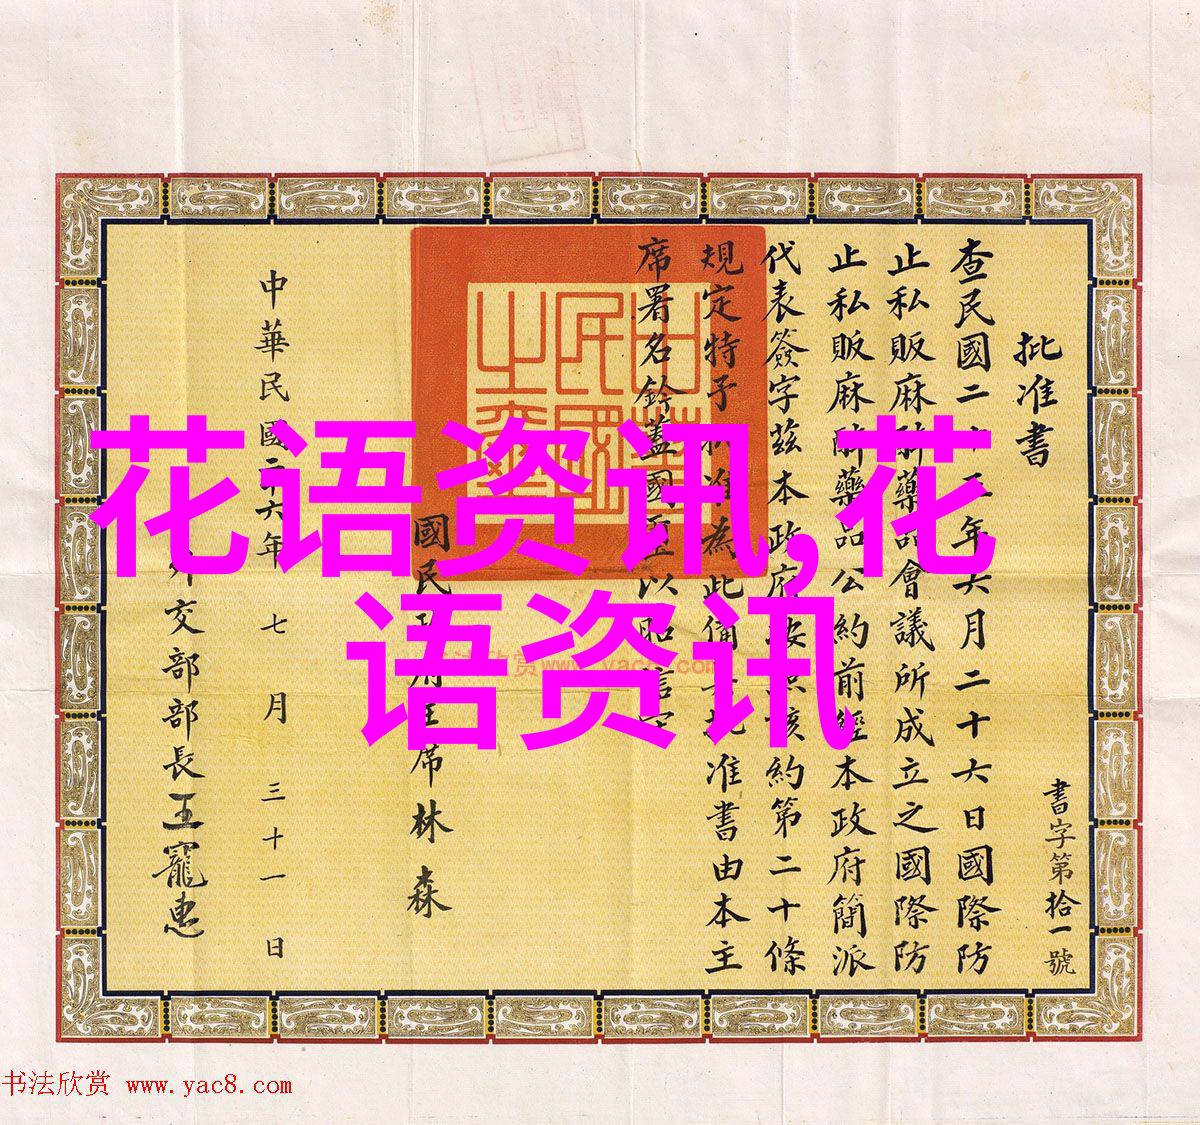 批准書
書字第拾一號
查民國二十五年六月二十六日國際防
止私販麻醉藥品會議所成立之國際防
止私販麻醉藥品公約前經本政府簡派
代表簽字茲本政府按照該約第二十條
規定特予批准為此備具批准書由本主
席署名鈐蓋國璽以昭信守
中華民國之璽
國民政府主席林森
中華民國二十六年七月三十一日
外交部部長王寵惠
花语资讯,花
语资讯
书法欣赏 www.yac8.com